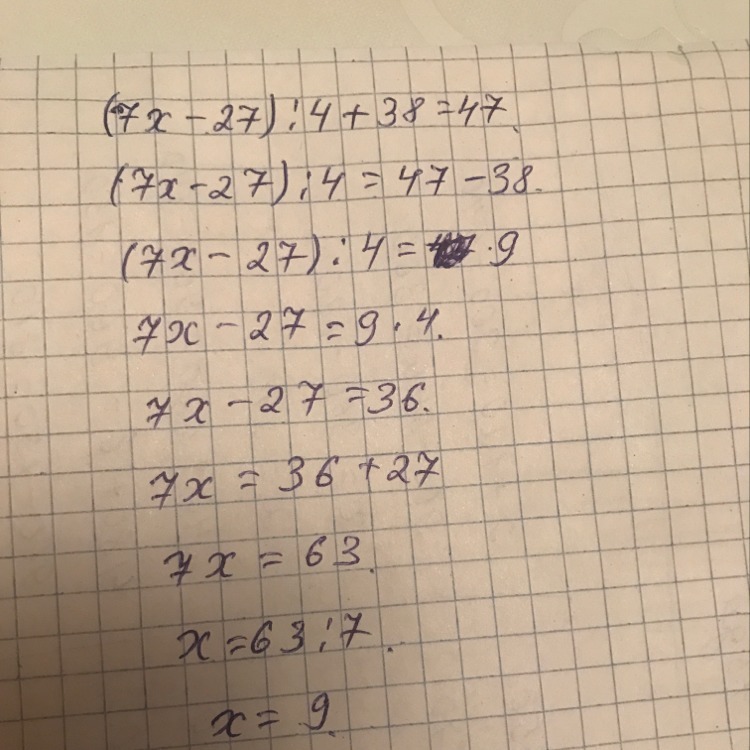 (7x - 27) : 4 + 38 = 47.
(7x - 27) : 4 = 47 - 38.
(7x - 27) : 4 = 9
7x - 27 = 9 · 4.
7x - 27 = 36.
7x = 36 + 27
7x = 63.
x = 63 : 7.
x = 9.